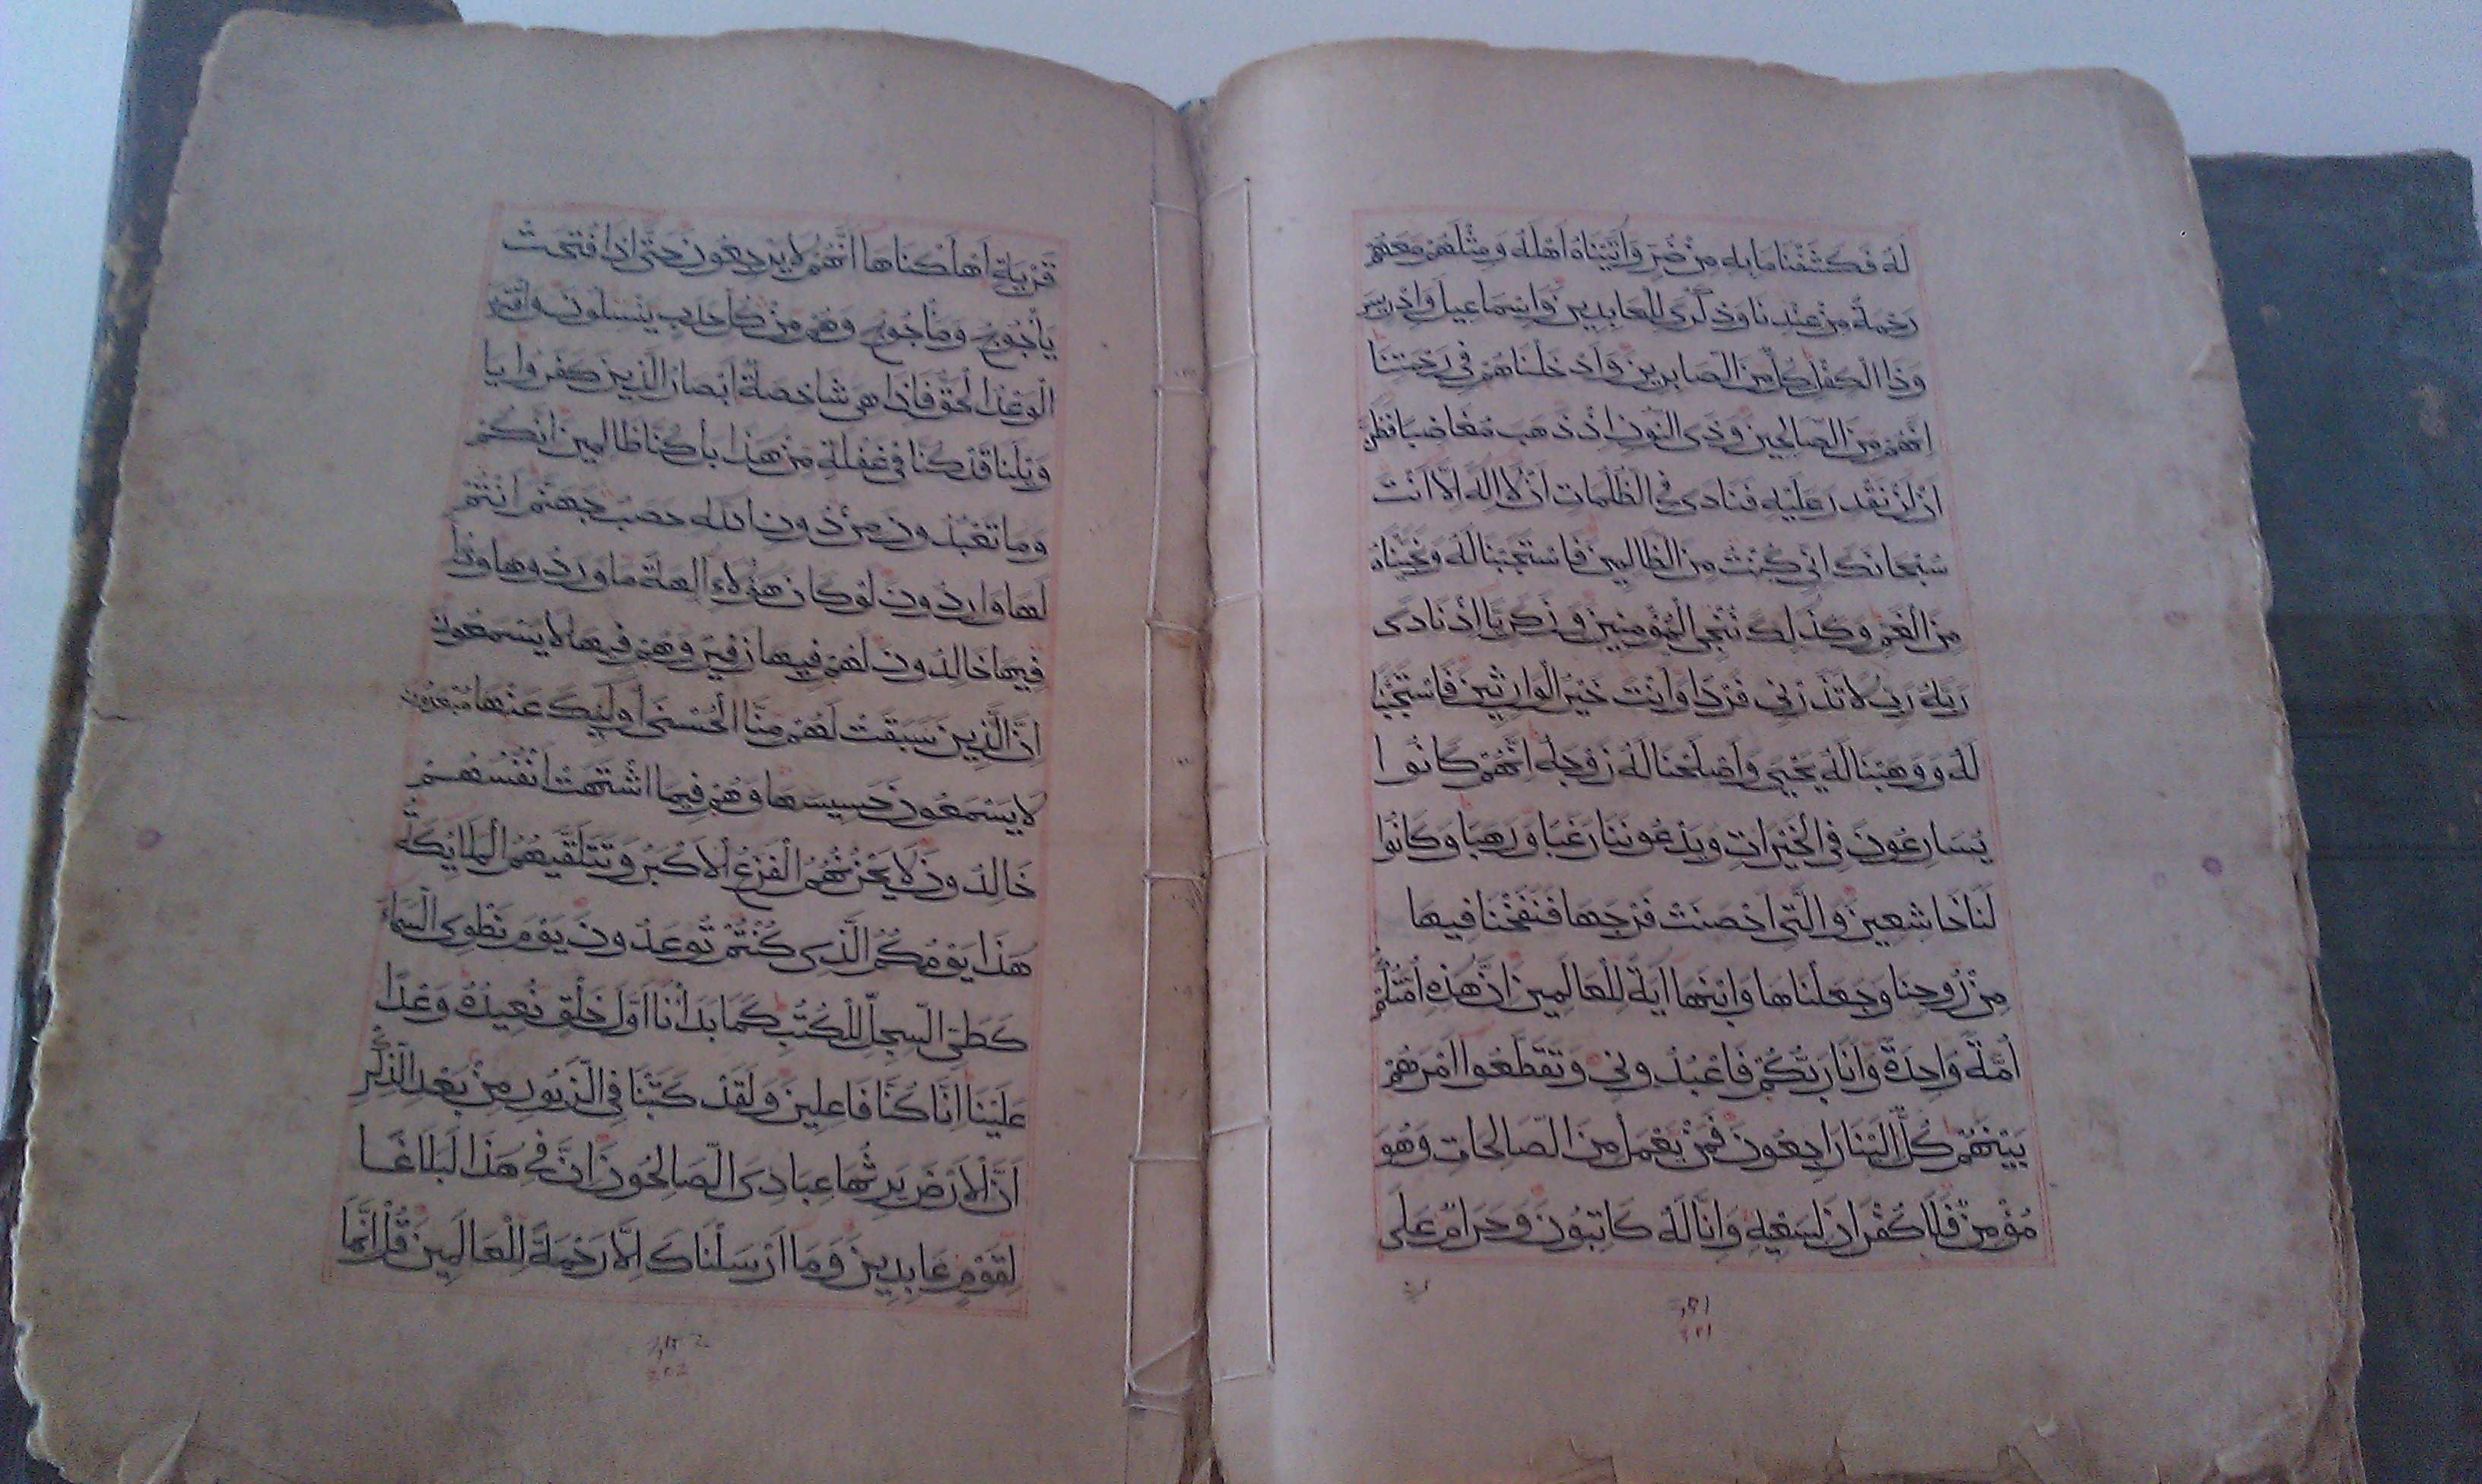 لَهُ فَكَشَفْنَا مَا بِهِ مِنْ ضُرٍّ وَاٰتَيْنَاهُ اَهْلَهُ وَمِثْلَهُمْ مَعَهُمْ
رَحْمَةً مِنْ عِنْدِنَا وَذِكْرَى لِلْعَابِدِينَ وَاِسْمَاعِيلَ وَاِدْرِيسَ
وَذَا الْكِفْلِ كُلٌّ مِنَ الصَّابِرِينَ وَاَدْخَلْنَاهُمْ فِي رَحْمَتِنَا
اِنَّهُمْ مِنَ الصَّالِحِينَ وَذَى النُّونِ اِذْ ذَهَبَ مُغَاضِبًا فَظَنَّ
اَنْ لَنْ نَقْدِرَ عَلَيْهِ فَنَادَى فِي الظُّلُمَاتِ اَنْ لَا اِلٰهَ اِلَّا اَنْتَ
سُبْحَانَكَ اِنِّي كُنْتُ مِنَ الظَّالِمِينَ فَاسْتَجَبْنَا لَهُ وَنَجَّيْنَاهُ
مِنَ الْغَمِّ وَكَذٰلِكَ نُنْجِي الْمُؤْمِنِينَ وَزَكَرِيَّا اِذْ نَادَى
رَبَّهُ رَبِّ لَا تَذَرْنِي فَرْدًا وَاَنْتَ خَيْرُ الْوَارِثِينَ فَاسْتَجَبْنَا
لَهُ وَوَهَبْنَا لَهُ يَحْيَى وَاَصْلَحْنَا لَهُ زَوْجَهُ اِنَّهُمْ كَانُوا
يُسَارِعُونَ فِي الْخَيْرَاتِ وَيَدْعُونَنَا رَغَبًا وَرَهَبًا وَكَانُوا
لَنَا خَاشِعِينَ وَالَّتِي اَحْصَنَتْ فَرْجَهَا فَنَفَخْنَا فِيهَا
مِنْ رُوحِنَا وَجَعَلْنَاهَا وَابْنَهَا اٰيَةً لِلْعَالَمِينَ اِنَّ هٰذِهِ اُمَّتُكُمْ
اُمَّةً وَاحِدَةً وَاَنَا رَبُّكُمْ فَاعْبُدُونِي وَتَقَطَّعُوا اَمْرَهُمْ
بَيْنَهُمْ كُلٌّ اِلَيْنَا رَاجِعُونَ فَمَنْ يَعْمَلْ مِنَ الصَّالِحَاتِ وَهُوَ
مُؤْمِنٌ فَلَا كُفْرَانَ لِسَعْيِهِ وَاِنَّا لَهُ كَاتِبُونَ وَحَرَامٌ عَلَى
قَرْيَةٍ اَهْلَكْنَاهَا اَنَّهُمْ لَا يَرْجِعُونَ حَتَّى اِذَا فُتِحَتْ
يَأْجُوجُ وَمَأْجُوجُ وَهُمْ مِنْ كُلِّ حَدَبٍ يَنْسِلُونَ وَاقْتَرَبَ
الْوَعْدُ الْحَقُّ فَاِذَا هِيَ شَاخِصَةٌ اَبْصَارُ الَّذِينَ كَفَرُوا يَا
وَيْلَنَا قَدْ كُنَّا فِي غَفْلَةٍ مِنْ هَذَا بَلْ كُنَّا ظَالِمِينَ اِنَّكُمْ
وَمَا تَعْبُدُونَ مِنْ دُونِ اللّٰهِ حَصَبُ جَهَنَّمَ اَنْتُمْ
لَهَا وَارِدُونَ لَوْ كَانَ هٰؤُلَاءِ اٰلِهَةً مَا وَرَدُوهَا وَكُلٌّ
فِيهَا خَالِدُونَ لَهُمْ فِيهَا زَفِيرٌ وَهُمْ فِيهَا لَا يَسْمَعُونَ
اِنَّ الَّذِينَ سَبَقَتْ لَهُمْ مِنَّا الْحُسْنَى اُولٰئِكَ عَنْهَا مُبْعَدُونَ
لَا يَسْمَعُونَ حَسِيسَهَا وَهُمْ فِيمَا اشْتَهَتْ اَنْفُسُهُمْ
خَالِدُونَ لَا يَحْزُنُهُمُ الْفَزَعُ الْاَكْبَرُ وَتَتَلَقَّيهُمُ الْمَلَائِكَةُ
هَذَا يَوْمُكُمُ الَّذِي كُنْتُمْ تُوعَدُونَ يَوْمَ نَطْوِي السَّمَاءَ
كَطَيِّ السِّجِلِّ لِلْكُتُبِ كَمَا بَدَأْنَا اَوَّلَ خَلْقٍ نُعِيدُهُ وَعْدًا
عَلَيْنَا اِنَّا كُنَّا فَاعِلِينَ وَلَقَدْ كَتَبْنَا فِي الزَّبُورِ مِنْ بَعْدِ الذِّكْرِ
اَنَّ الْاَرْضَ يَرِثُهَا عِبَادِيَ الصَّالِحُونَ اِنَّ فِي هَذَا لَبَلَاغًا
لِقَوْمٍ عَابِدِينَ وَمَا اَرْسَلْنَاكَ اِلَّا رَحْمَةً لِلْعَالَمِينَ قُلْ اِنَّمَا